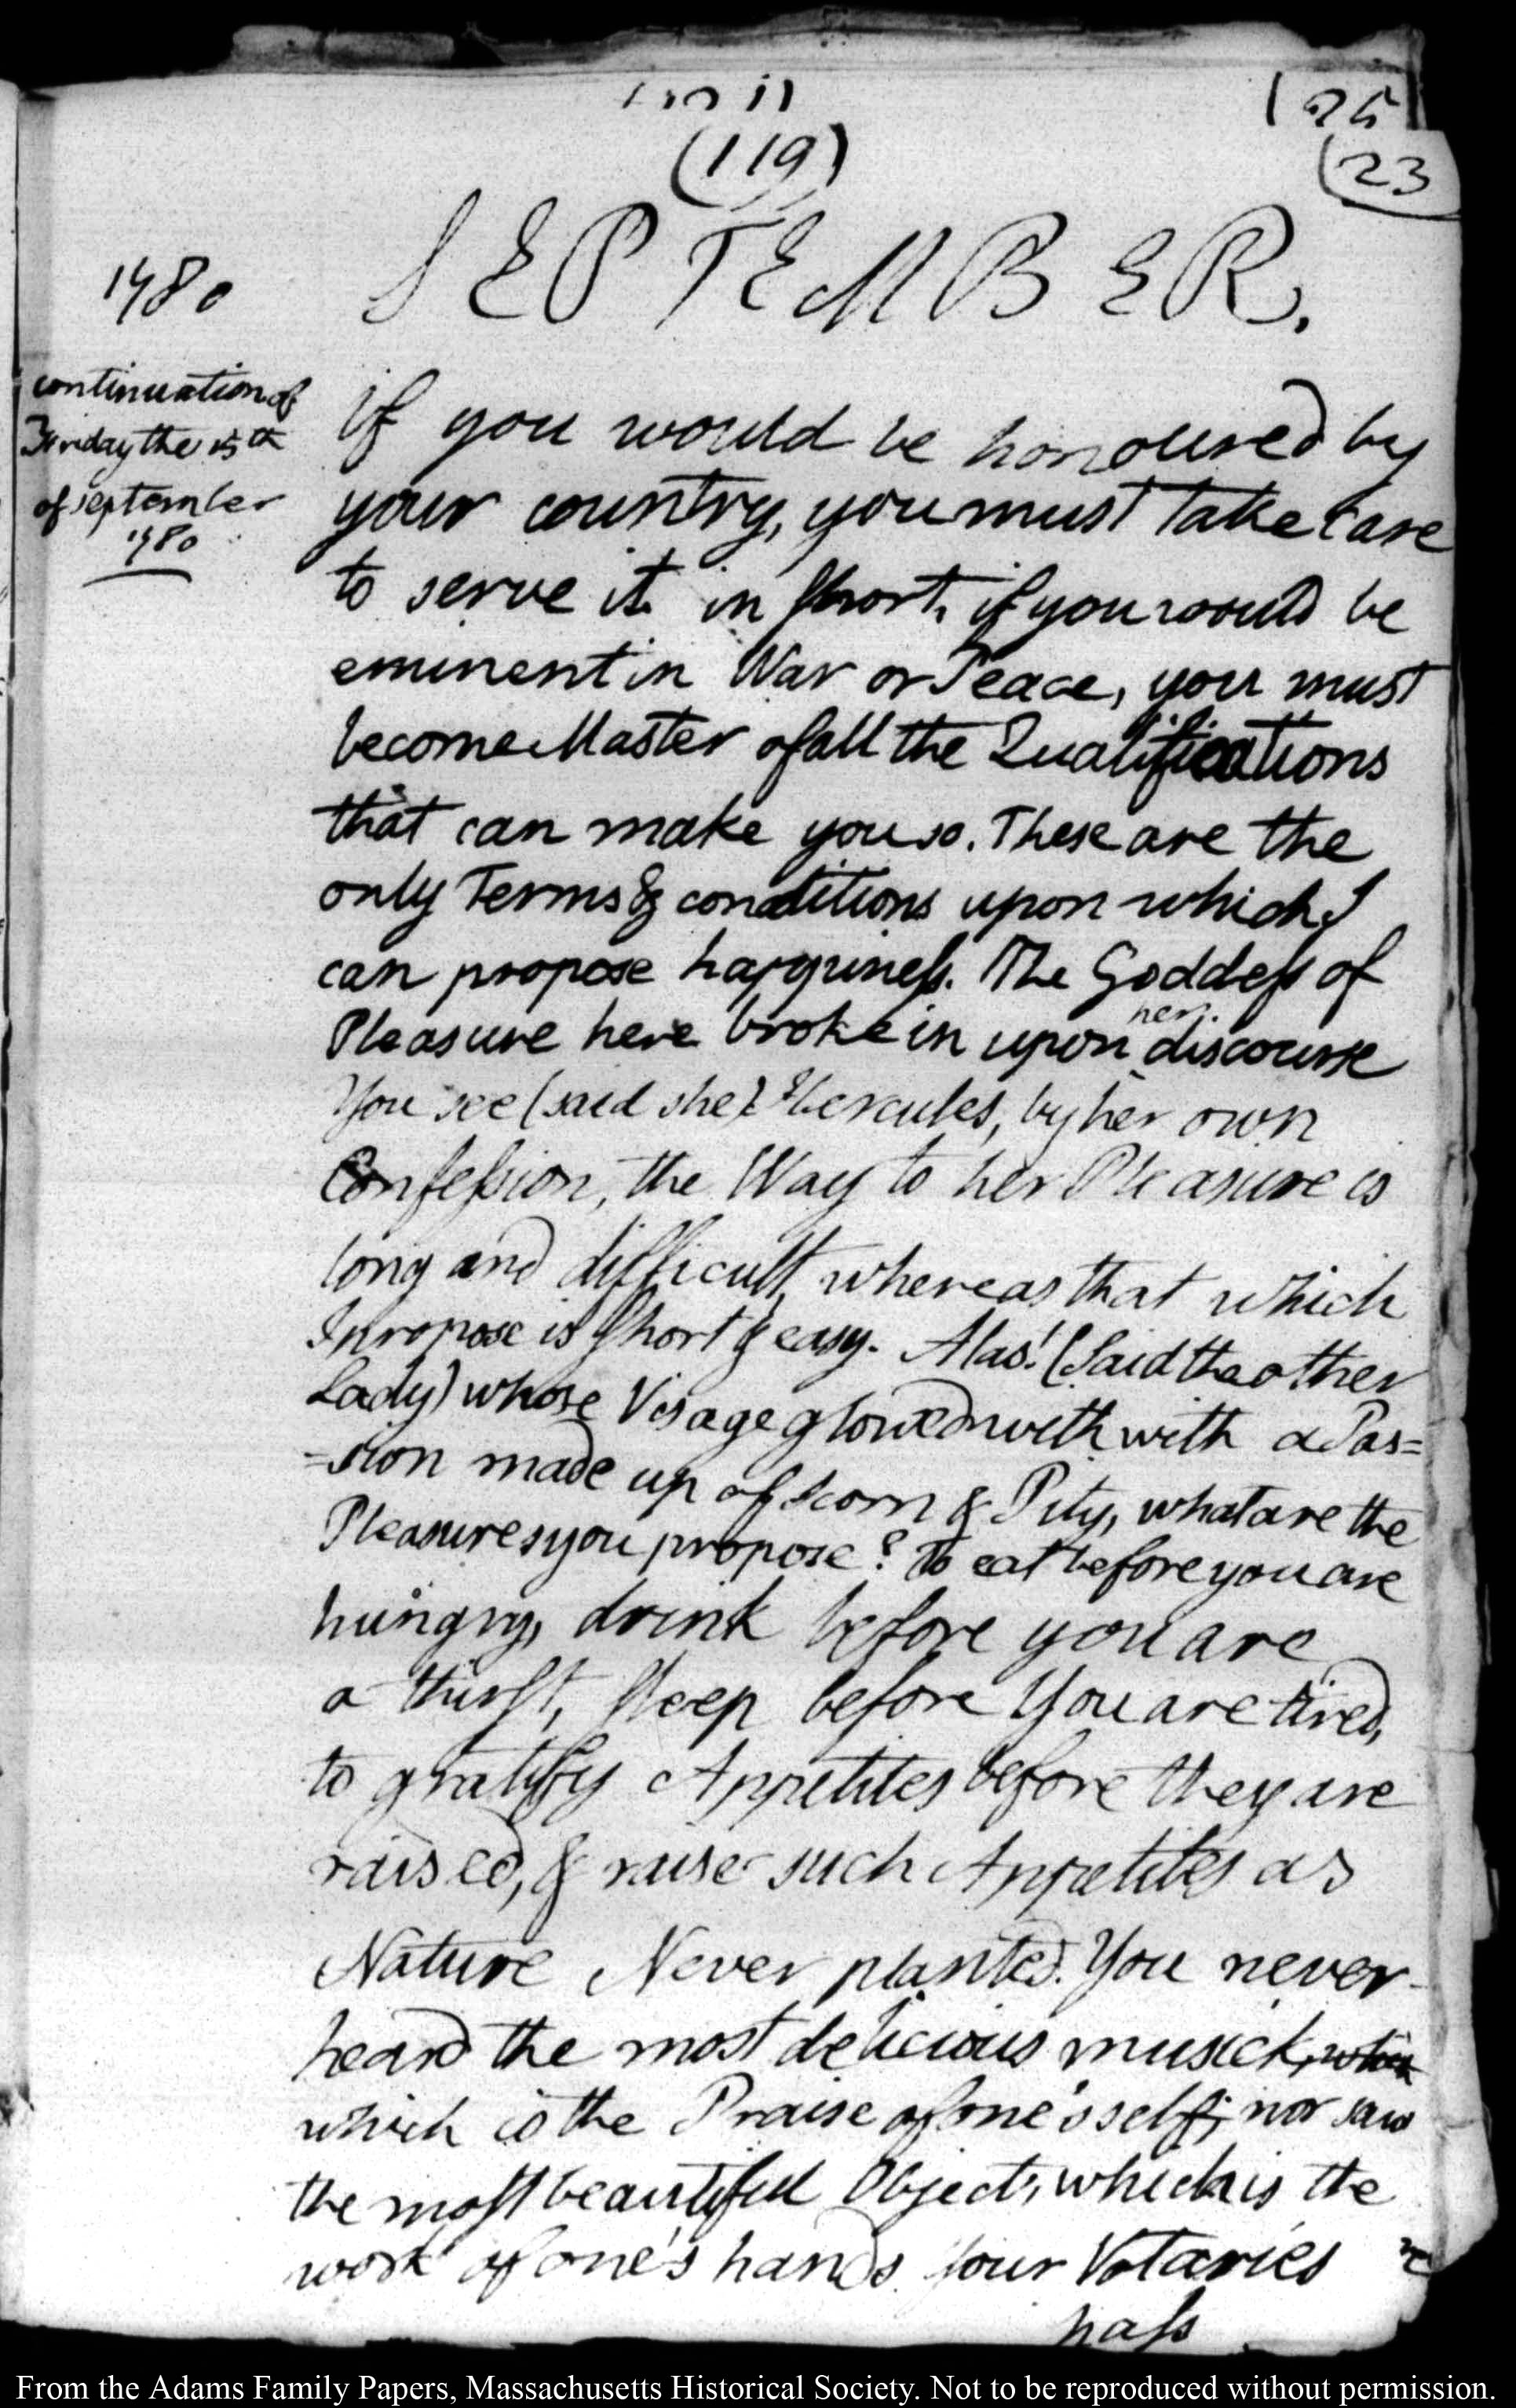 (119)
(23
SEPTEMBER.
1780
continuation of
Friday the 15th
of September
1780
if you would be honoured by
your country, you must take Care
to serve it. in short, if you would be
eminent in War or Peace, you must
become Master of all the Qualifications
that can make you so. These are the
only Terms & conditions upon which I
can propose happiness. The Goddess of
Pleasure here broke in upon her discourse
You see (said she) Hercules, by her own
Confession, the Way to her Pleasure is
long and difficult, whereas that which
I propose is short & easy. Alas! (Said the other
Lady) whose Visage glowed with with a Pas=
=sion made up of scorn & Pity, what are the
Pleasures you propose? To eat before you are
hungry, drink before you are
a thirst, sleep before You are tired,
to gratify Appetites before they are
raised, & raise such Appetites as
Nature Never planted. You never
heard the most delicious musick, which
which is the Praise of one's self; nor saw
the most beautiful Object, which is the
work of one's hands Your Votaries
pass
From the Adams Family Papers, Massachusetts Historical Society. Not to be reproduced without permission.